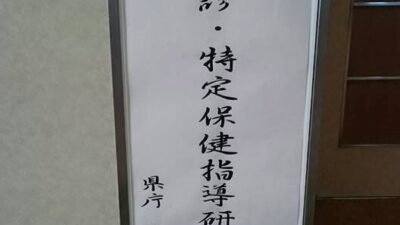 ・特定保健指導研
県庁